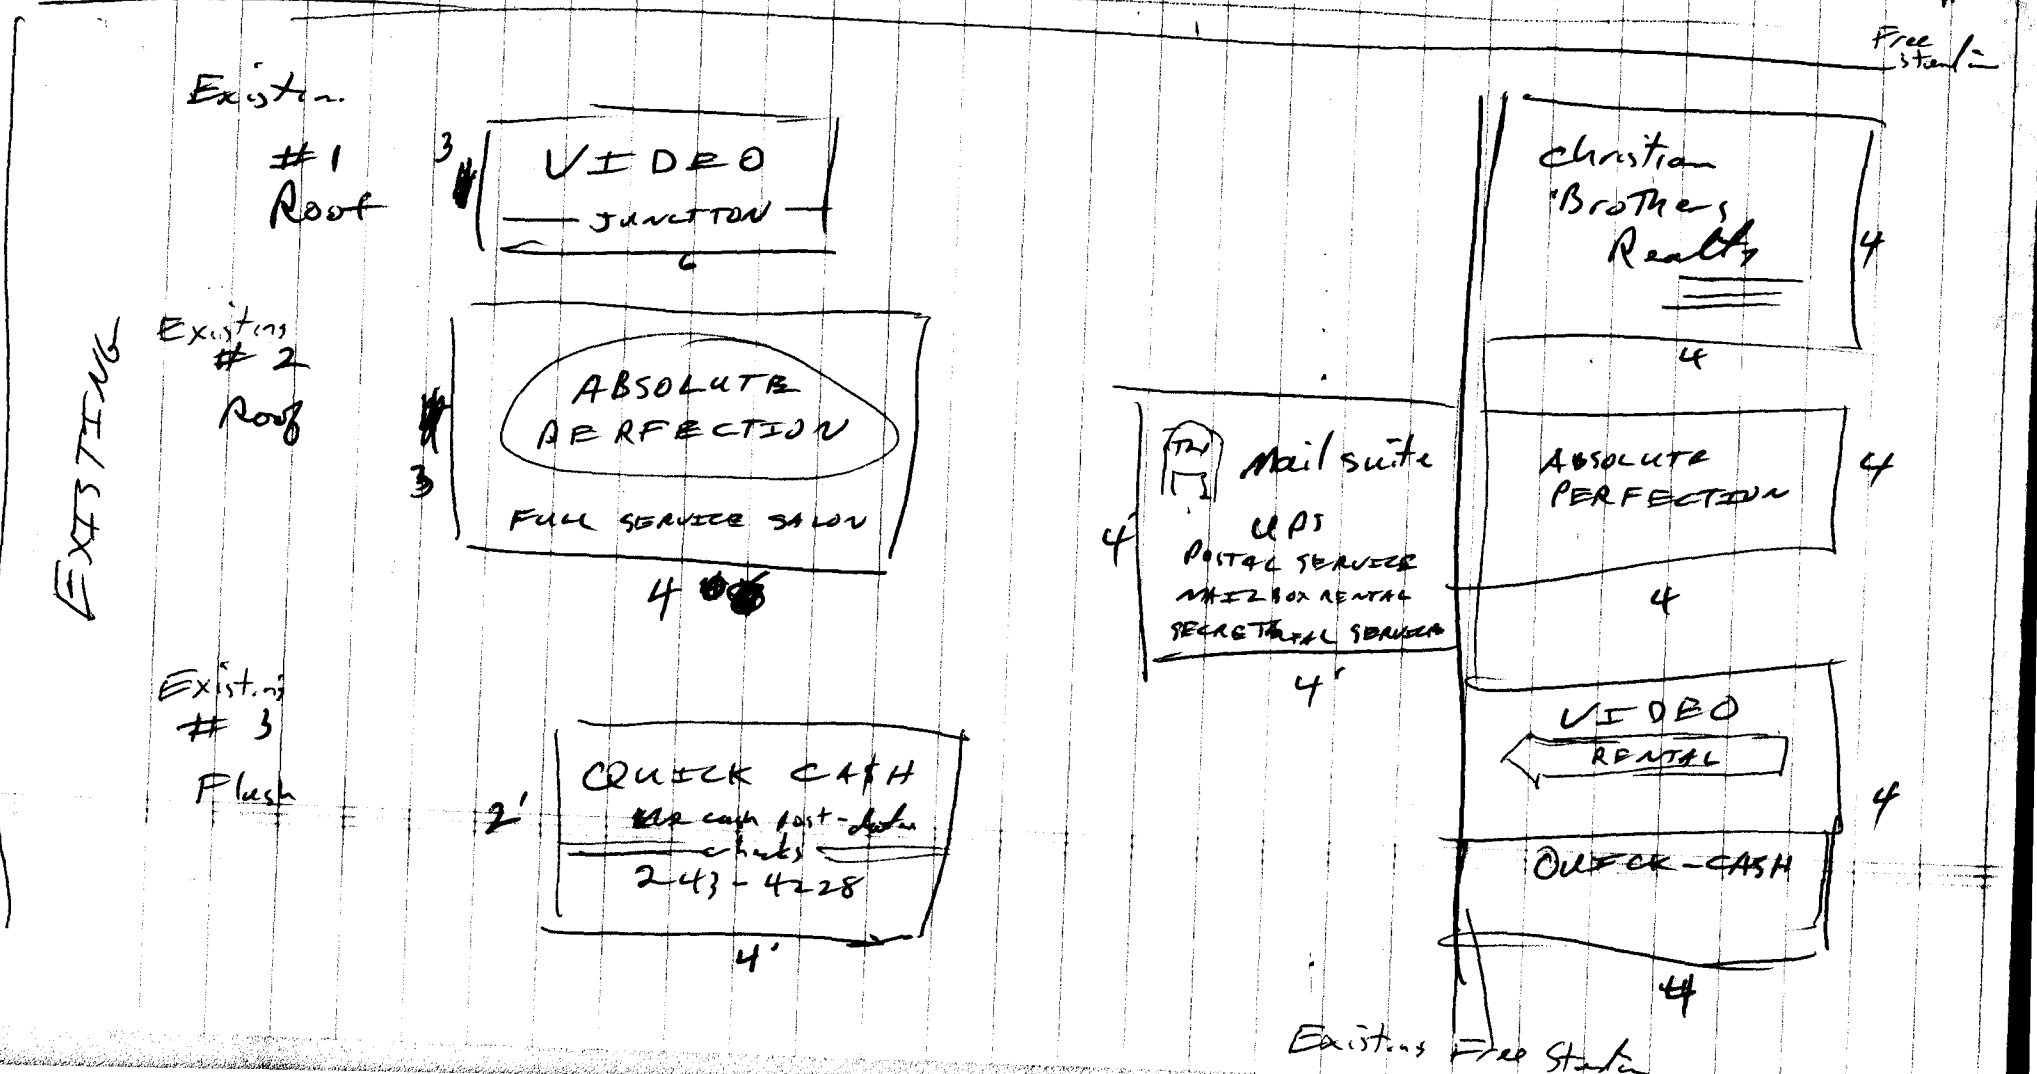 Free
EXISTING
Existin
#1
Roof
3
VIDEO
JUNCTION
6
Existing
# 2
Roof
3
ABSOLUTE
PERFECTION
FULL SERVICE SALON
4
Existing
# 3
Flush
2'
QUICK CA$H
cash post-
checks
243-4228
4'
4'
Mail suite
UPS
POSTAL SERVICE
MAILBOX RENTAL
SECRETARIAL SERVICE
4'
Christian
Brothers
Realty
4
4
ABSOLUTE
PERFECTION
4
4
VIDEO
RENTAL
4
QUICK-CASH
4
Existing Free